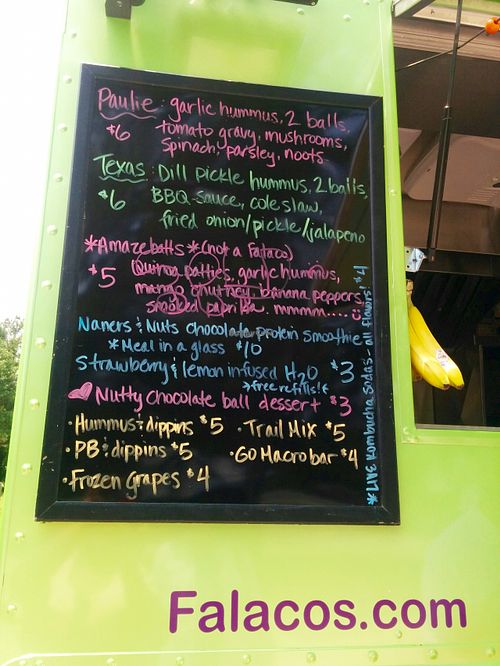 Paulie: garlic hummus, 2 balls,
$6 tomato gravy, mushrooms,
spinach, parsley, noots
Texas: Dill pickle hummus, 2 balls,
$6 BBQ sauce, coleslaw,
fried onion/pickle/jalapeno
*Amazeballs* (not a falaco)
$5 Quinoa patties, garlic hummus,
mango chutney, banana peppers,
smoked paprika. mmmmm....
Naners & Nuts chocolate protein smoothie
*Meal in a glass $10
Strawberry & lemon infused H2O $3
*free refills!*
Nutty chocolate ball dessert $3
·Hummus & dippins $5 ·Trail Mix $5
·PB & dippins $5 ·GO Macro bar $4
·Frozen Grapes $4
*LIVE Kombucha Sodas - all flavors! $4
Falacos.com